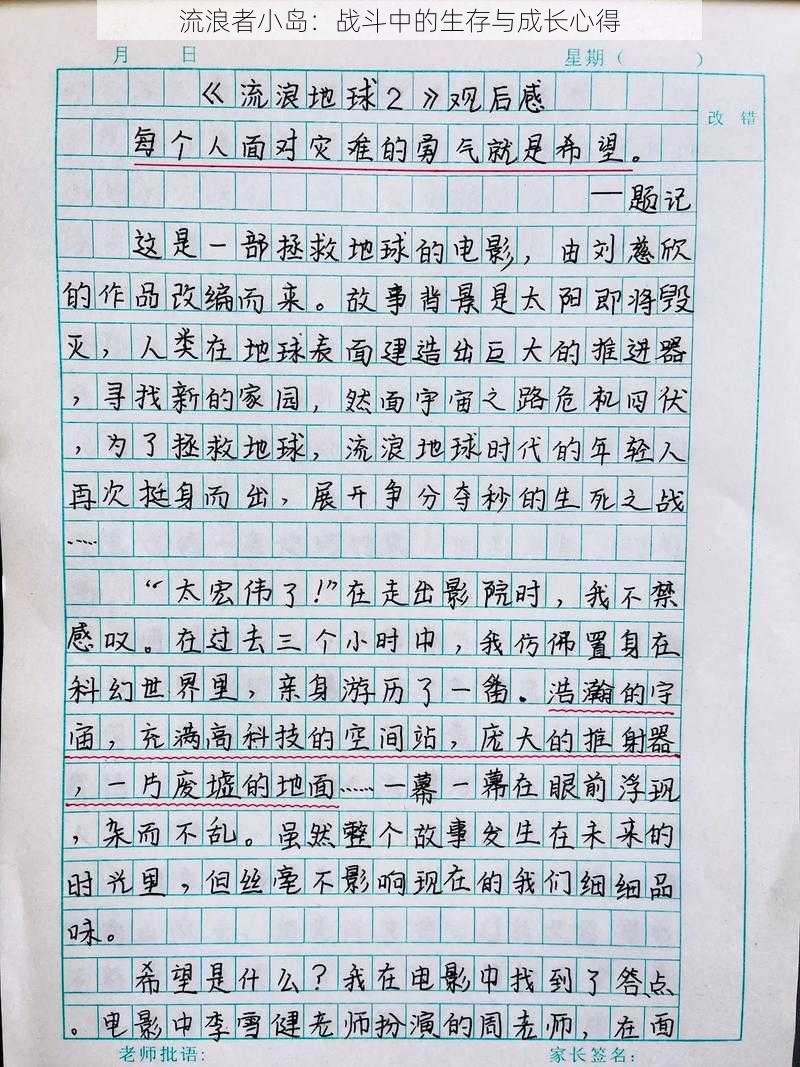 流浪者小岛：战斗中的生存与成长心得
月 日 星期（ ）
改 错
《流浪地球2》观后感
每个人面对灾难的勇气就是希望。
—题记
这是一部拯救地球的电影，由刘慈欣
的作品改编而来。故事背景是太阳即将毁
灭，人类在地球表面建造出巨大的推进器
，寻找新的家园，然面宇宙之路危机四伏
，为了拯救地球，流浪地球时代的年轻人
再次挺身而出，展开争分夺秒的生死之战
……
“太宏伟了！”在走出影院时，我不禁
感叹。在过去三个小时中，我仿佛置身在
科幻世界里，亲身游历了一番．浩瀚的宇
宙，充满高科技的空间站，庞大的推射器
，一片废墟的地面……一幕一幕在眼前浮现
，杂而不乱。虽然整个故事发生在未来的
时光里，但丝毫不影响现在的我们细细品
味。
希望是什么？我在电影中找到了答点
。电影中李雪健老师扮演的周老师，在面
老师批语： 家长签名：